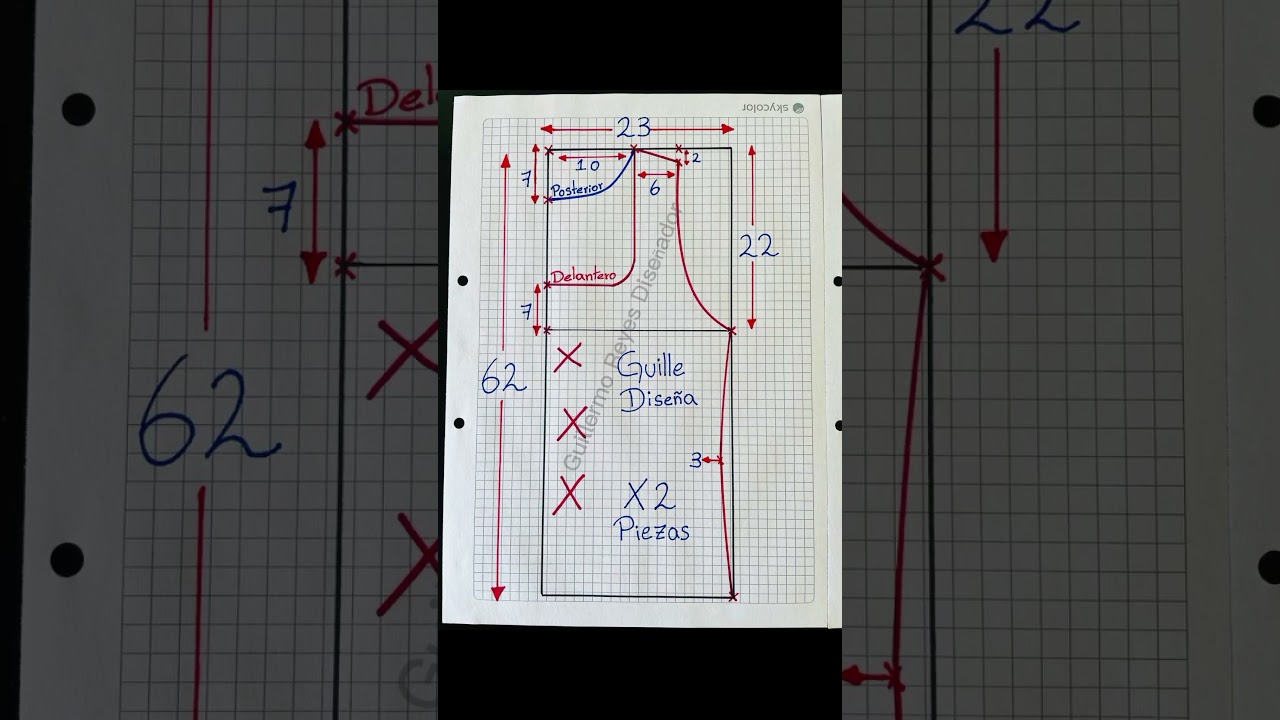 skycolor
23
10
2
7
Posterior
6
22
Delantero
7
62
Guille
Diseña
3
X2
Piezas
Guillermo Reyes Diseñador
22
Del
7
62